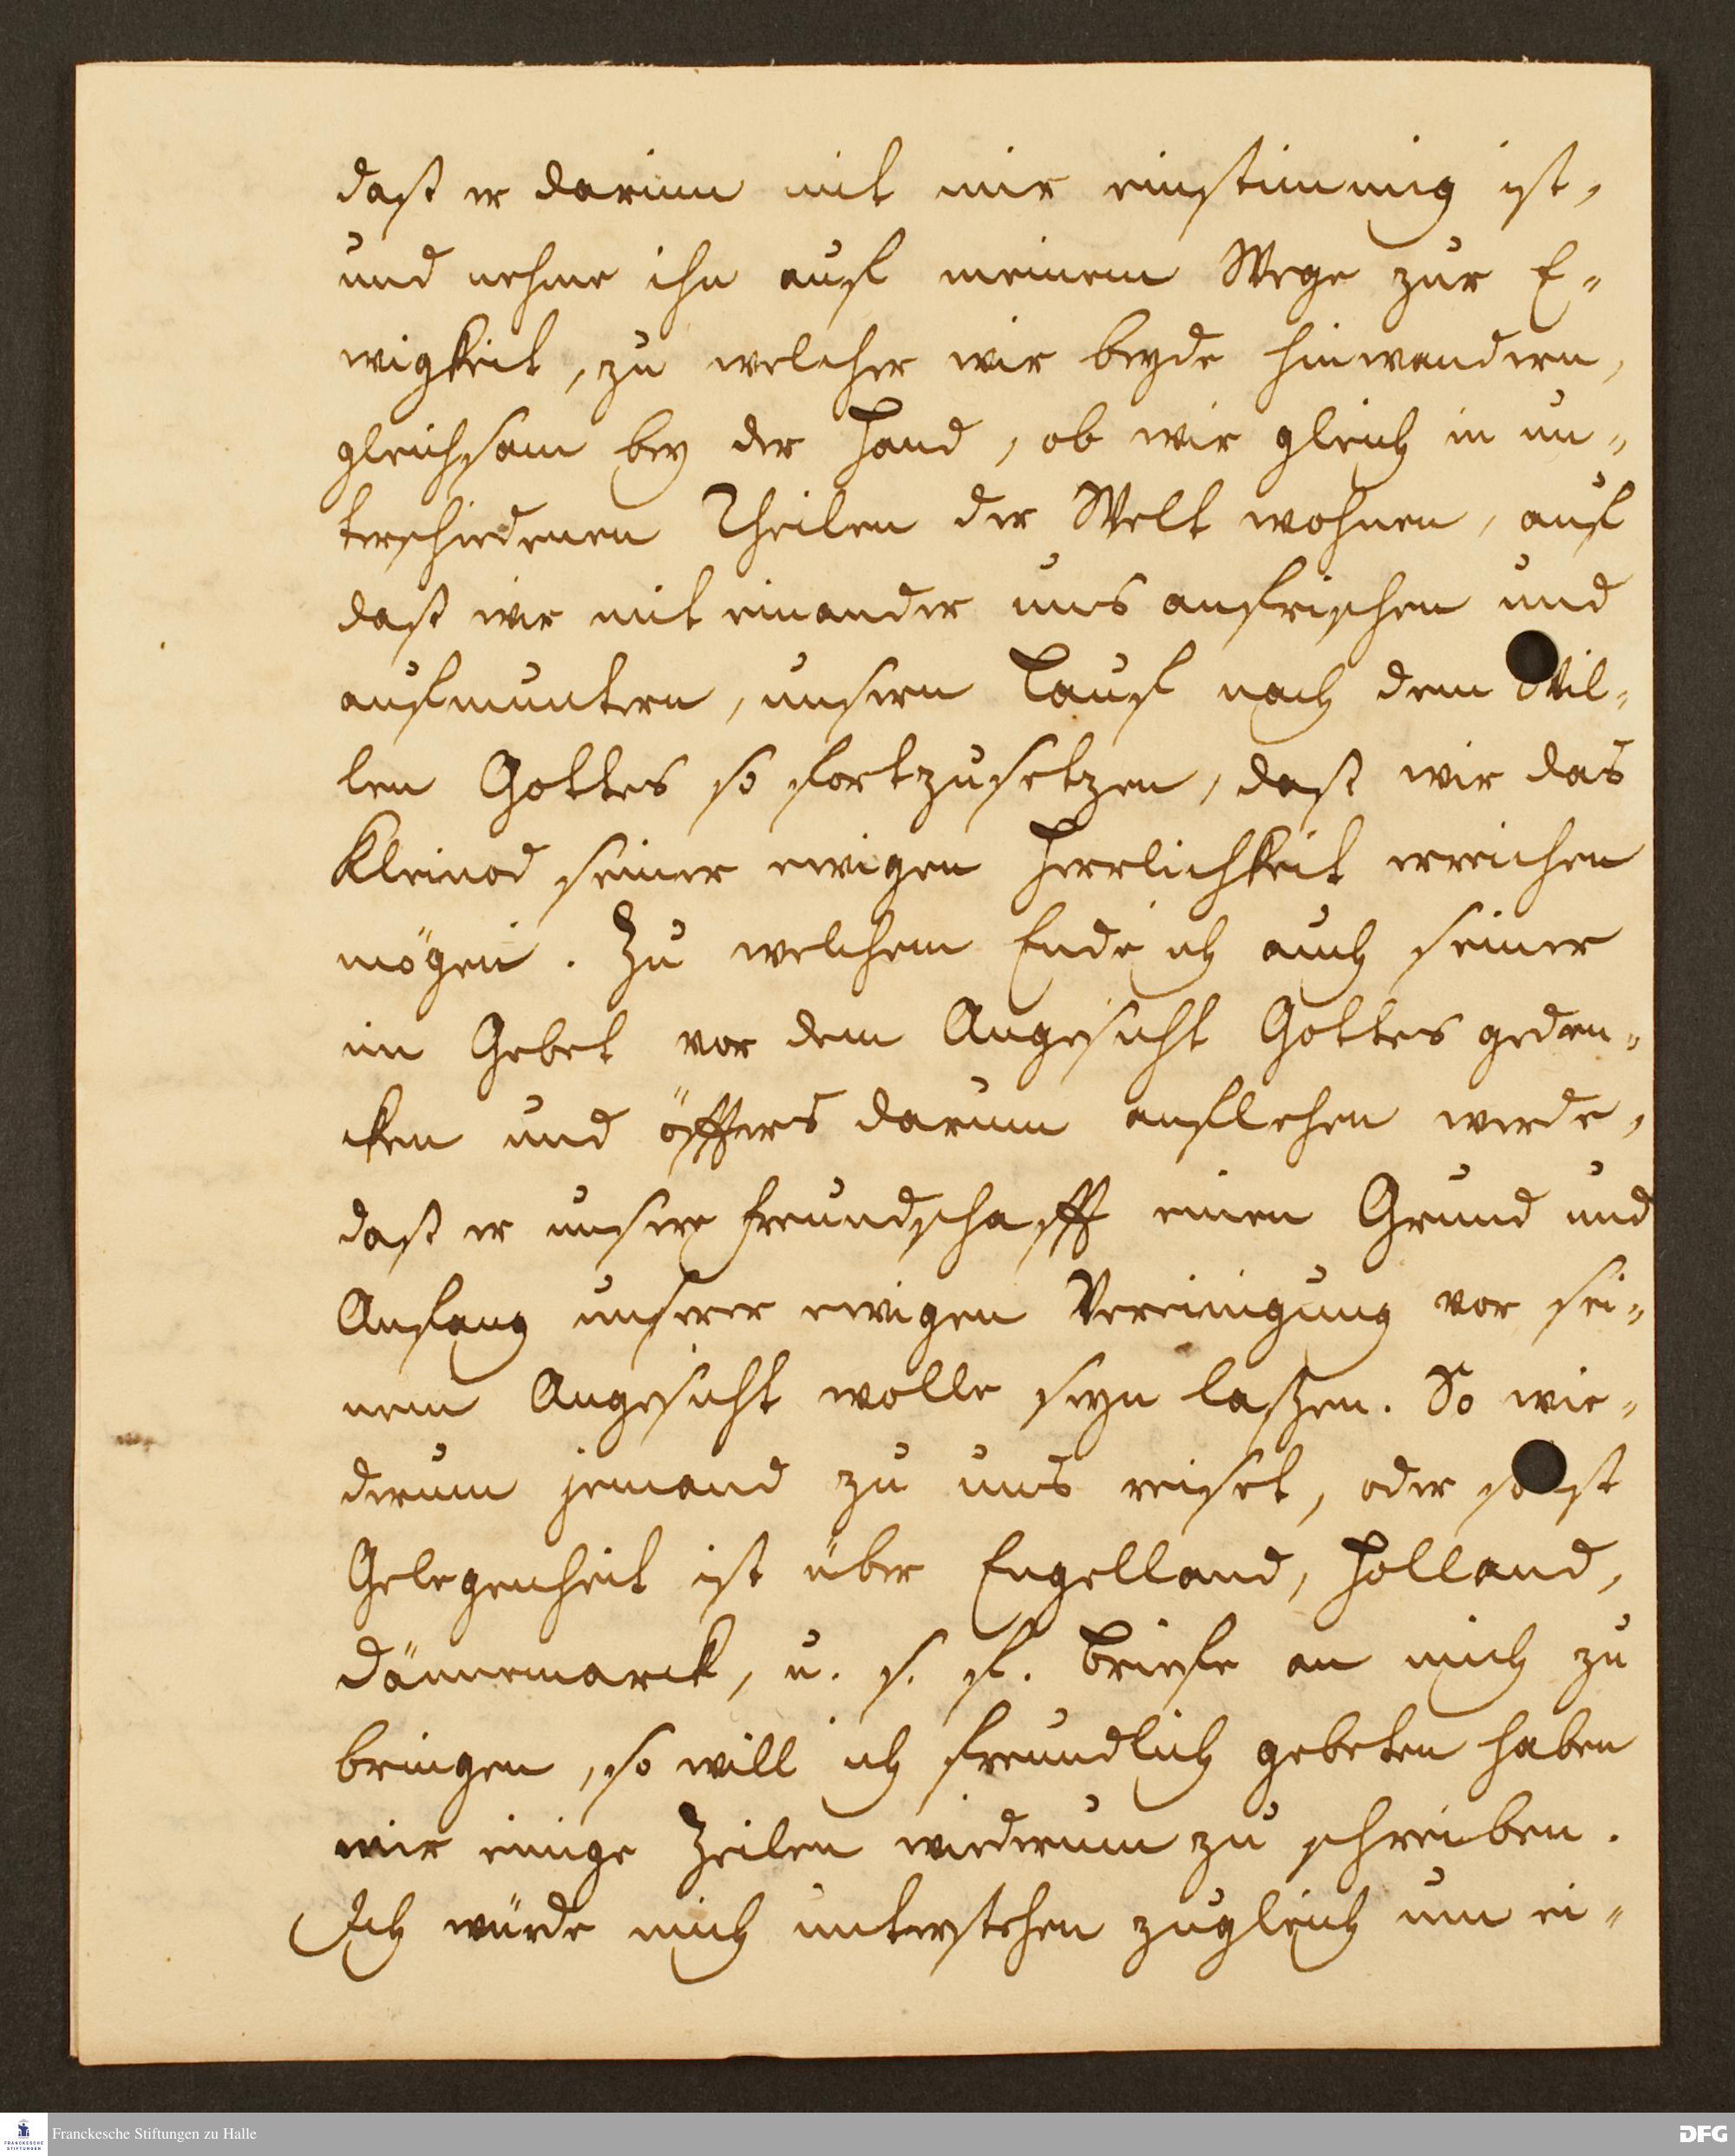 daß er darinn mit mir einstimmig ist,
und nehme ihn auf meinem Wege zur E-
wigkeit, zu welcher wir beyde hinwandern,
gleichsam bey der Hand, ob wir gleich in un-
terschiedenen Theilen der Welt wohnen, auf
daß wir mit einander uns anfrischen und
aufmuntern, unsern Lauf nach dem Wil-
len Gottes so fortzusetzen, daß wir das
Kleinod seiner ewigen Herrlichkeit erreichen
mögen. Zu welchem Ende ich auch seiner
im Gebet vor dem Angesicht Gottes geden-
cken und öffters darum anflehen werde,
daß er unsere Freundschafft einen Grund und
Anfang unserer ewigen Vereinigung vor sei-
nem Angesicht wolle seyn laßen. So wie-
derum jemand zu uns reiset, oder sonst
Gelegenheit ist über Engelland, Holland,
Dännemarck, u. s. f. Briefe an mich zu
bringen, so will ich freundlich gebeten haben
mir einige Zeilen wiederum zu schreiben.
Ich würde mich unterstehen zugleich um ei-
FRANCKESCHE STIFTUNGEN
Franckesche Stiftungen zu Halle
DFG